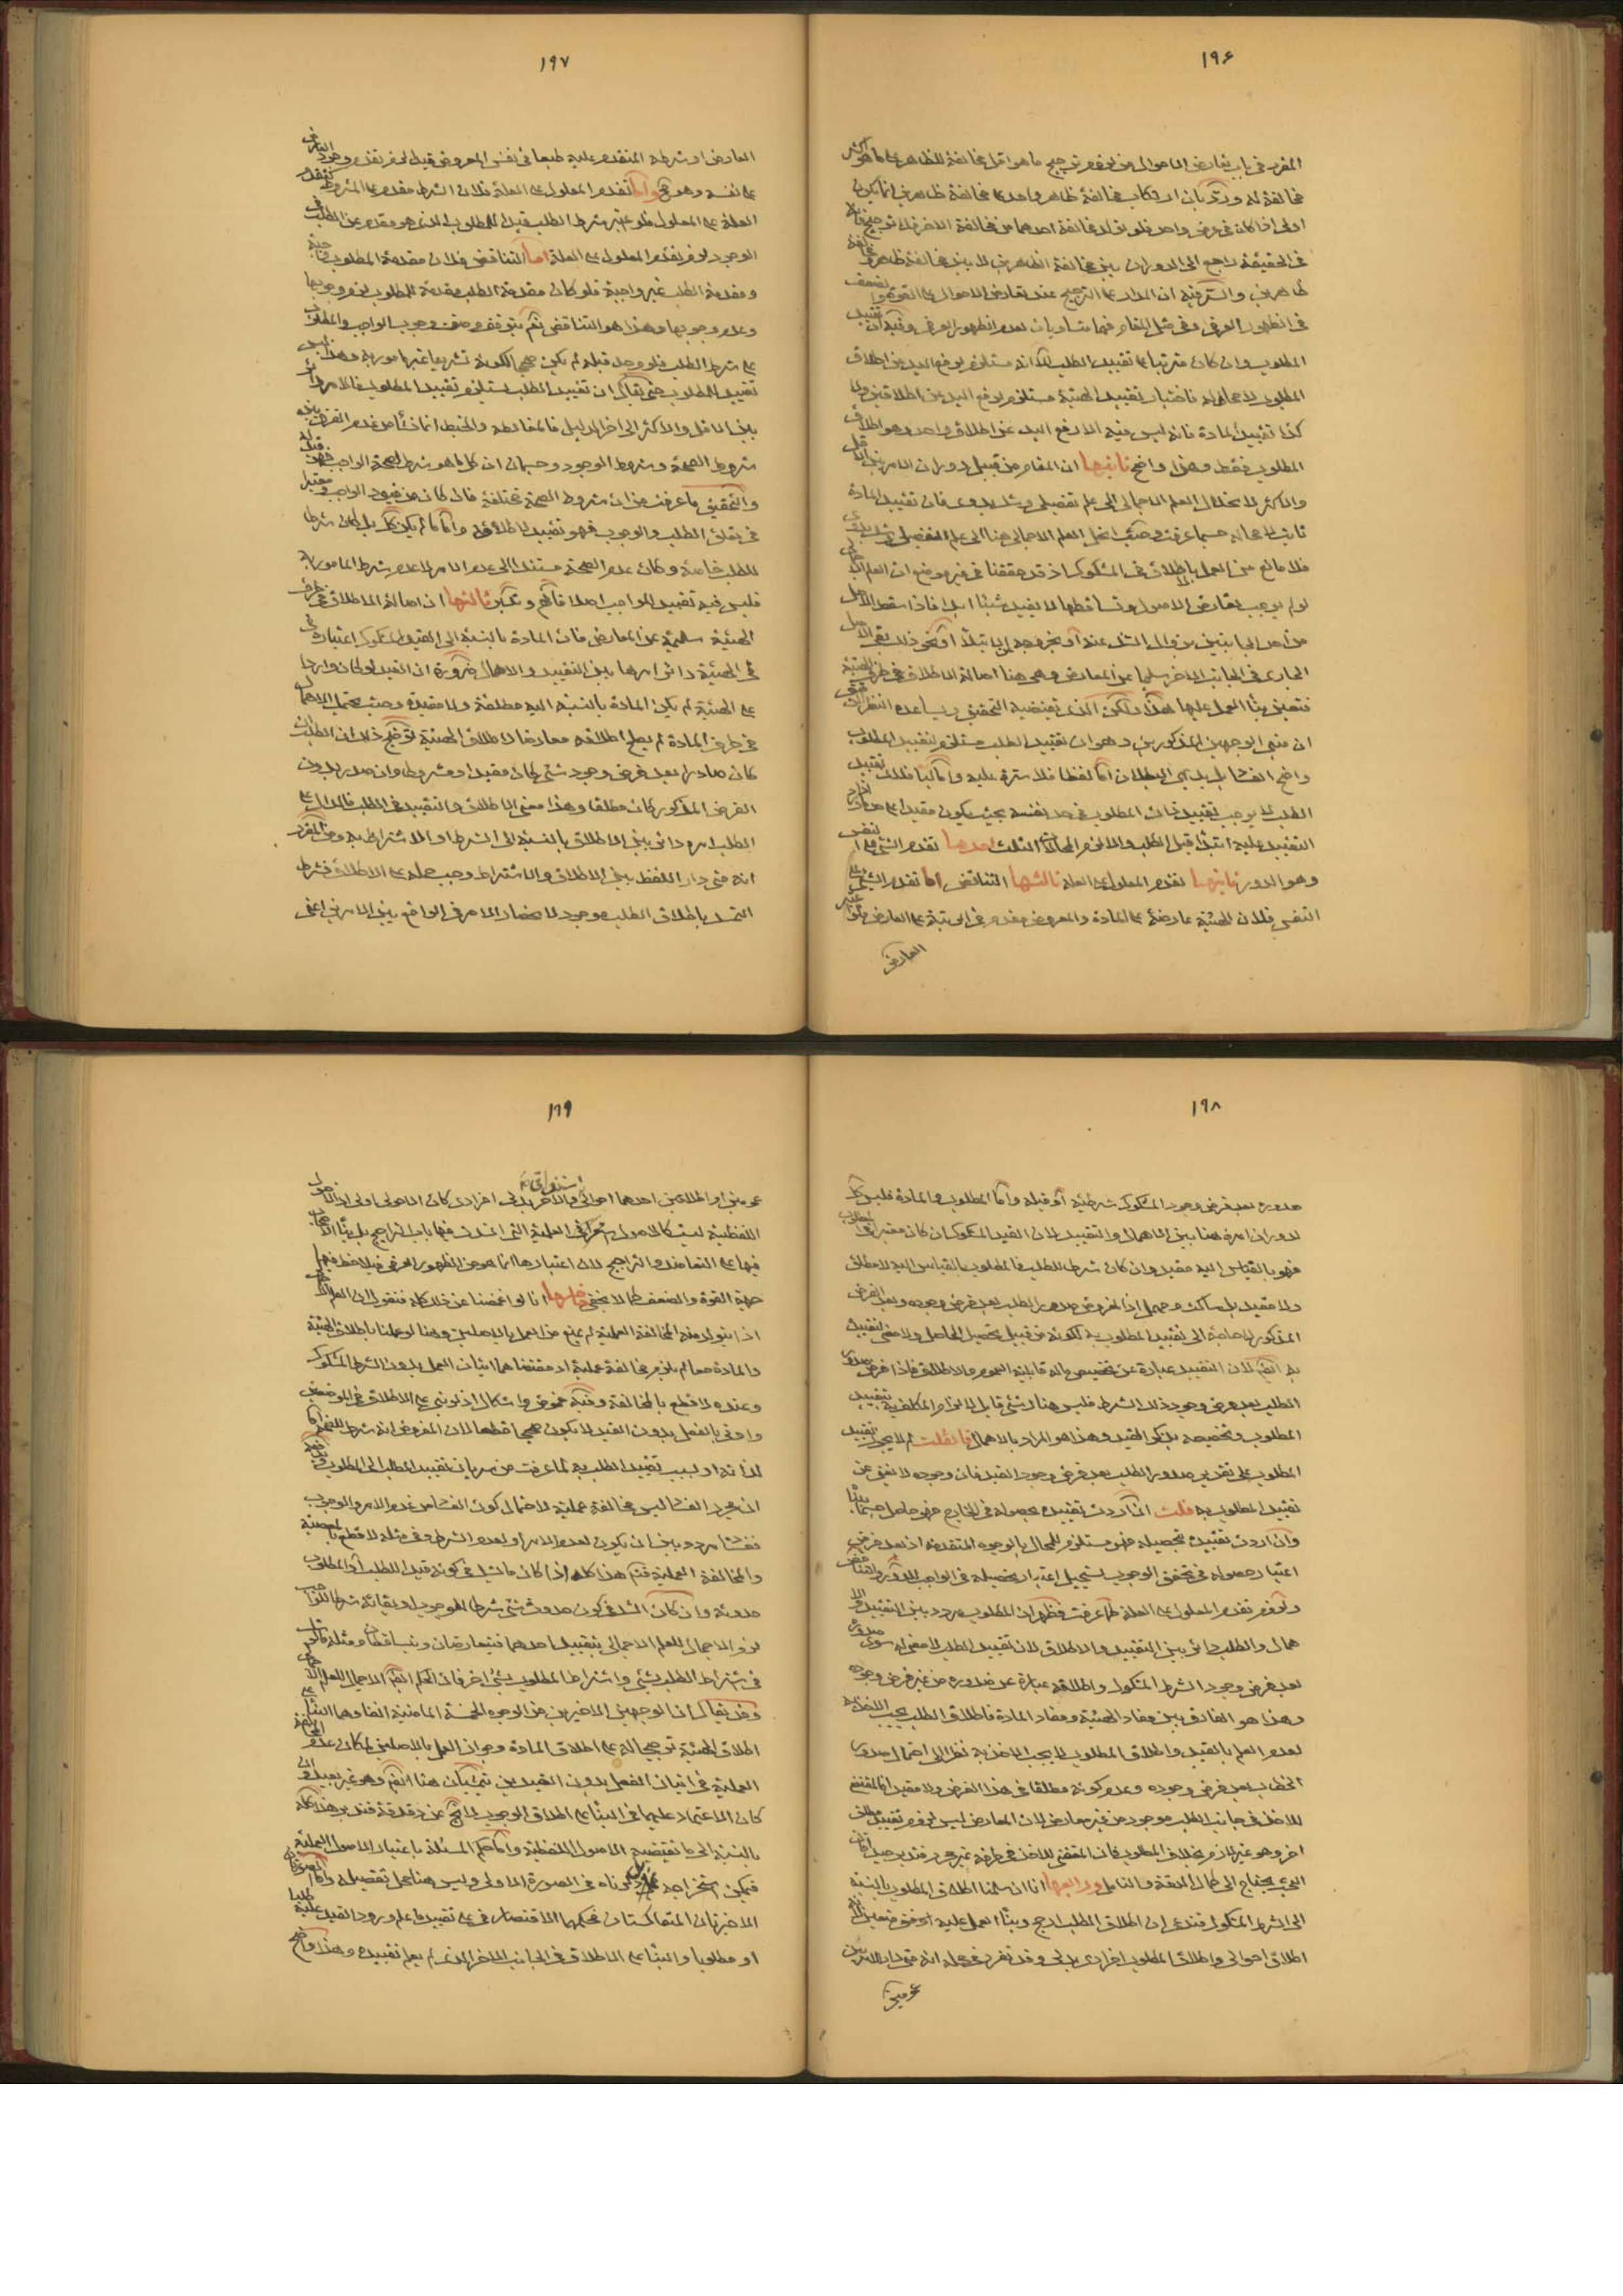 ١٩۶
المقرر في باب تعارض الاحوال من لزوم ترجيح ما هو اقل مخالفة للظاهر على ما هو اكثر
مخالفة له ورد بان ارتكاب مخالفة ظاهر واحد على مخالفة ظاهرين انما يكون
اولى اذا كان في عرض واحد فلو تولد مخالفة احدهما من مخالفة الاخر فلا ترجيح فانه
في الحقيقة راجع الى الدوران بين مخالفة الظاهرين لا بين مخالفة ظاهر و مخالفة
ظاهرين والسر فيه ان المدار على الترجيح عند تعارض الاحوال على القوة والضعف
في الظهور العرفي وفي مثل المقام فهما متساويان لعدم الظهور العرفي وفيه ان تقييد
المطلوب وان كان مترتبا على تقييد الطلب لكنه مستلزم لرفع اليد عن اطلاق
المطلوب لا محالة فاختيار تقييد الهيئة مستلزم لرفع اليد عن اطلاقين ولا
كذا تقييد المادة فانه ليس فيه الا رفع اليد عن اطلاق واحد وهو اطلاق
المطلوب فقط وهذا واضح ثانيها ان المقام من قبيل دوران الامر بين الاقل
والاكثر لانحلال العلم الاجمالي الى علم تفصيلي وشك بدوي فان تقييد المادة
ثابت لا محالة حسبما عرفت وحيث انحل العلم الاجمالي هنا الى علم تفصيلي وشك بدوي
فلا مانع من العمل بالاطلاق في المشكوك اذ قد حققنا في غير موضع ان العلم الاجمالي
لو لم يوجب تعارض الاصول وتساقطها لا يفيد شيئا ابدا فاذا سقط الاصل
من احد الجانبين بزوال الشك عنه او بخروجه عن الابتلاء او نحو ذلك بقى الاصل
الجارى في الجانب الاخر سليما عن المعارض وهى هنا اصالة الاطلاق في طرف الهيئة
فتعين بناء العمل عليها هذا ولكن الذى يقتضيه التحقيق ويساعده النظر الدقيق
ان مبنى الوجهين المذكورين وهو ان تقييد الطلب مستلزم لتقييد المطلوب
واضح الفساد بل بديهى البطلان اما لفظا فلا سترة عليه واما لبا فلان تقييد
الطلب لا يوجب تقييد ذات المطلوب في حد نفسه بحيث يكون مقيدا على حد ما ورد
التقييد عليه ابتداء قبل الطلب والا لزم المحالات الثلث احدها تقدم الشئ على نفسه
وهو الدور ثانيها تقدم المعلول على العلة ثالثها التناقض اما تقدم الشئ على
النفس فلان الهيئة عارضة على المادة والمعروض مقدم في الرتبة على العارض فلو اعتبر
العارض
١٩٧
العارض او شرطه المتقدم عليه طبعا في نفس المعروض قبله لزم تقدم وجود العارض
على نفسه وهو مح واما تقدم المعلول على العلة فلان الشرط مقدم على المشروط كتقدم
العلة على المعلول فلو اعتبر شرط الطلب قبل المطلوب الذى هو مقدم على الطلب في
الوجود لزم تقدم المعلول على العلة اما التناقض فلان مقدمة المطلوب واجبة
ومقدمة الطلب غير واجبة فلو كان مقدمة الطلب مقدمة للمطلوب لزم وجوبها
وعدم وجوبها وهذا هو التناقض نعم يتوقف وصف وجوب الواجب والمطلوب
على شرط الطلب فلو وجد قبله لم يكن صحيحا لكونه تشريعا غير مامور به وهذا ليس
تقييد للمطلوب حتى يقال ان تقييد الطلب يستلزم تقييد المطلوب فالامر دائر
بين الاقل والاكثر الى اخر الدليل فالمغالطة والخبط انما نشأ من عدم الفرق بين
شروط الصحة وشروط الوجود وحسبان ان كل ما هو شرط لصحة الواجب فهو قيد له
والتحقيق ما عرفت من ان شروط الصحة مختلفة فان كان من قيود الواجب و معتبرا
في تعلق الطلب والوجوب فهو تقييد لاطلاقه واما ما لم يكن كك بل كان شرطا
للطلب خاصة وكان عدم الصحة مستندا الى عدم الامر لا عدم شرط المامور به
فليس فيه تقييد للواجب اصلا فافهم وتدبر ثالثها ان اصالة الاطلاق في طرف
الهيئة سليمة عن المعارض فان المادة بالنسبة الى القيد المشكوك اعتباره في
في الهيئة دائر امرها بين التقييد والاهمال ضرورة ان القيد لو كان واردا
على الهيئة لم يكن المادة بالنسبة اليه مطلقة ولا مقيدة وحيث يحتمل الاهمال
في طرف المادة لم يصلح اطلاقه معارضا لاطلاق الهيئة توضيح ذلك ان الطلب ان
كان صادرا بعد فرض وجود شئ كان مقيدا ومشروطا وان صدر بدون
الفرض المذكور كان مطلقا وهذا معنى الاطلاق والتقييد في الطلب فالدال على
الطلب امره دائر بين الاطلاق بالنسبة الى الشرط او الاشتراط به ومن المقرر
انه متى دار اللفظ بين الاطلاق والاشتراط وجب حمله على الاطلاق فشرط
التمسك باطلاق الطلب موجود لانحصار الامر في الواقع بين الامرين اعنى
١٩٨
صدوره بعد فرض وجود المشكوك شرطيته او قبله واما المطلوب والمادة فليس كك
لدوران امره هنا بين الاهمال والتقييد لان القيد المشكوك ان كان معتبرا في المطلوب
فهو بالقياس اليه مقيد وان كان شرطا للطلب فالمطلوب بالقياس اليه لا مطلق
ولا مقيد بل ساكت ومهمل اذ المفروض صدور الطلب بعد فرض وجوده وبعد الفرض
المذكور لا حاجة الى تقييد المطلوب به لكونه من قبيل تحصيل الحاصل ولا معنى لتقييده
به ايضا لان التقييد عبارة عن تخصيص ماله قابلية العموم والاطلاق فاذا فرض صدور
الطلب بعد فرض وجود ذلك الشرط فليس هنا شئ قابل لالزام المكلف به بتقييد
المطلوب وتخصيصه بذلك القيد وهذا هو المراد بالاهمال فان قلت لم لا يجوز تقييد
المطلوب على تقدير صدور الطلب بعد فرض وجود القيد فان وجوده لا يغنى عن
تقييد المطلوب به قلت ان اردت تقييده بحصوله في الخارج فهو حاصل حسبما بينا
وان اردت تقييده بتحصيله فهو مستلزم للمحال بالوجوه المتقدمة اذ بعد فرض
اعتبار حصوله في تحقق الوجوب يستحيل اعتبار تحصيله في الواجب للدور والتناقض
ولزوم تقدم المعلول على العلة كما عرفت فظهر ان المطلوب مردد بين التقييد والا
همال والطلب دائر بين التقييد والاطلاق لان تقييد الطلب لا معنى له سوى صدوره
بعد فرض وجود الشرط المشكوك واطلاقه عبارة عن صدوره من غير فرض وجوده
وهذا هو الفارق بين مفاد الهيئة ومفاد المادة فاطلاق الطلب يجب الاخذ به
لعدم العلم بالقيد واطلاق المطلوب لا يجب الاخذ به نظرا الى احتمال صدور
الخطاب بعد فرض وجوده وعدم كونه مطلقا في هذا الفرض ولا مقيدا فالمقتضى
للاخذ في جانب الطلب موجود من غير معارض لان المعارض ليس الا لزوم تقييد مطلق
اخر وهو غير لازم بخلاف المطلوب فان المقتضى للاخذ في طرفه غير محرز فتدبر جيدا فان
المبحث يحتاج الى كمال الدقة والتامل ورابعها انا ان سلمنا اطلاق المطلوب بالنسبة
الى الشرط المشكوك فندعى ان اطلاق الطلب ارجح وبناء العمل عليه اوفق
اطلاق احوالى واطلاق المطلوب افرادى بدلى وقد تقرر في محله انه متى دار الامر بين
عمومين
١٩٩
عمومين او اطلاقين احدهما احوالى والاخر بدلى افرادى كان الاحوالى اولى اذ الاصول
اللفظية ليست كالاصول العملية التى انسدت فيها باب التراجيح بل بناء الاصحاب
فيها على التعاضد والتراجيح لان اعتبارها انما هو من الظهور العرفي فيلاحظ فيهما
جهة القوة والضعف كما لا يخفى وخامسها انا لو اغمضنا عن ذلك كله فنقول ان العلم الاجمالي
اذا يتولد منه المخالفة العملية لم يمنع من العمل بالاصلين وهنا لو عملنا باطلاق الهيئة
والمادة معا لم يلزم مخالفة عملية اذ مقتضاهما اتيان العمل بدون الشرط المشكوك
وعنده لا قطع بالمخالفة وفيه غموض واشكال اذ لو بنى على الاطلاق في الموضعين
واوتى بالفعل بدون القيد لا يكون صحيحا قطعا لان المفروض انه شرط للفعل اما
لذاته او لسبب تقييد الطلب به لما عرفت من سريان تقييد الطلب الى المطلوب وفيه
ان مجرد الفساد ليس مخالفة عملية لاحتمال كون الفساد من عدم الامر والوجوب
ففساده مردد بين ان يكون لعدم الامر او لعدم الشرط وفي مثله لا قطع بالمعصية
والمخالفة العملية فتم هذا كله اذا كان ما شك في كونه قيدا للطلب او المطلوب
حدوثه وان كان الشك في كون حدوث شئ شرطا للوجوب او بقائه شرطا للواجب
لزم الاجمال للعلم الاجمالي بتقييد احدهما فيتعارضان ويتساقطان ومثله ما لو شك
في اشتراط الطلب بشئ واشتراط المطلوب بشئ اخر فان الحكم ايضا الاجمال للعلم الاجمالي
وقد يقال ان الوجهين الاخيرين من الوجوه الخمسة الماضية اعنى
اطلاق الهيئة ترجيحا له على اطلاق المادة وجواز العمل بالاصلين لمكان عدم المخالفة
العملية في اتيان الفعل بدون القيدين يتمشيان هنا ايضا وهو غير بعيد وان
كان الاعتماد عليهما في البناء على اطلاق الوجوب لا يخلو عن دغدغة فتدبر هذا كله
بالنسبة الى ما يقتضيه الاصول اللفظية واما حكم المسئلة باعتبار الاصول العملية
فيمكن استخراجه مما ذكرناه في الصورة الاولى وليس هنا محل تفصيله واما الصورتان
الاخيرتان المتعاكستان فحكمهما الاقتصار في على تقييد ما علم ورود القيد عليه طلبا
او مطلوبا والبناء على الاطلاق في الجانب الاخر الذى لم يعلم تقييده وهذا واضح